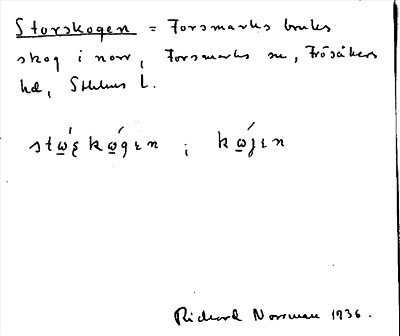 Storskogen = Forsmarks bruks
skog i norr, Forsmarks sn, Frösåkers
hd, Sthlms l.
kώjɩn
Richard Norrman 1936.